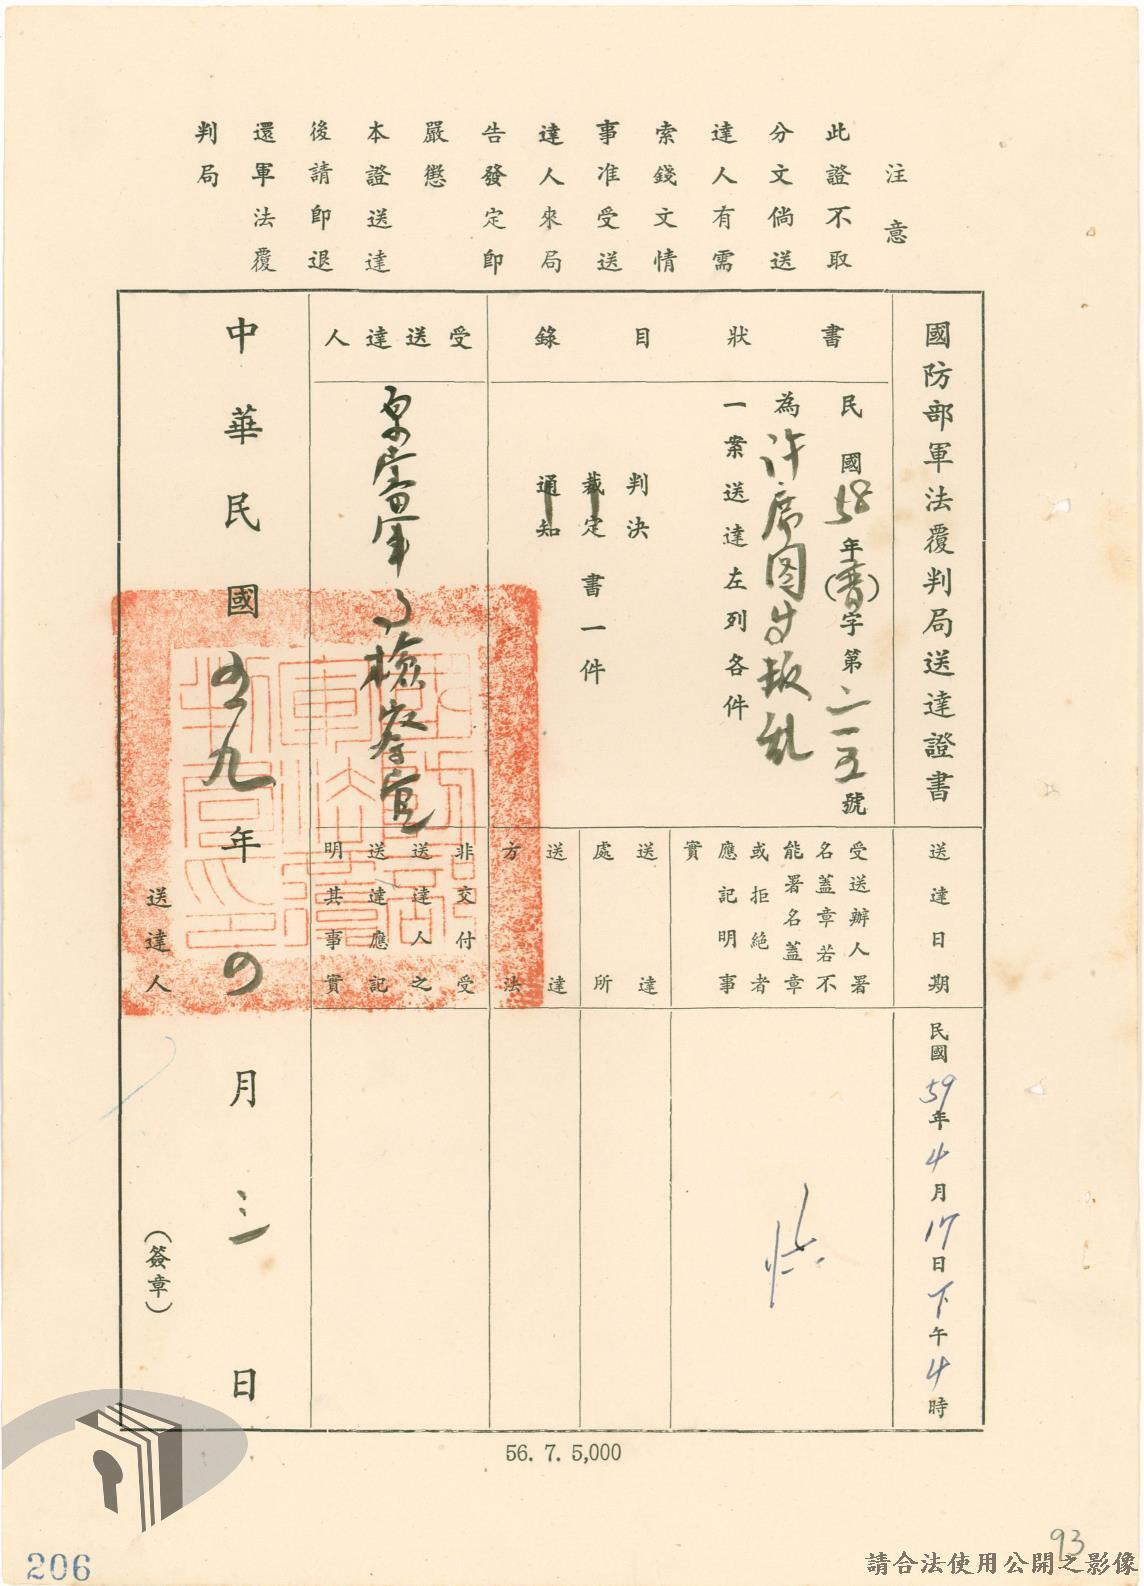 注意
此證不取
分文倘送
達人有需
索錢文情
事准受送
達人來局
告發定即
嚴懲
本證送達
後請即退
還軍法覆
判局
國防部軍法覆判局送達證書
書狀目錄
民國58年(普)字第二一五號
為許席圖等叛亂
一案送達左列各件
判決
裁定書一件
通知
受送達人
原審軍事檢察官
中華民國五九年四月三日
送達日期
民國59年4月17日下午4時
受送辦人署
名蓋章若不
能署名蓋章
或拒絕者
應記明事
實
送達
處所
送達
方法
非交付受
送達人之
送達應記
明其事實
送達人
(簽章)
國防部
軍法覆
判局印
56. 7. 5,000
206
93
請合法使用公開之影像